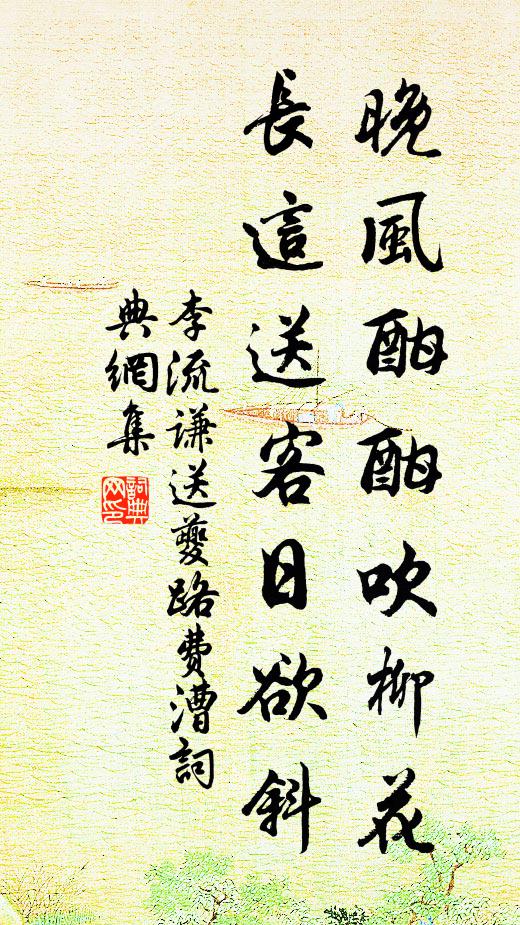 晚風酣酣吹柳花
長這送客日欲斜
李流謙送夔路費漕詞
典網集
詞典网印